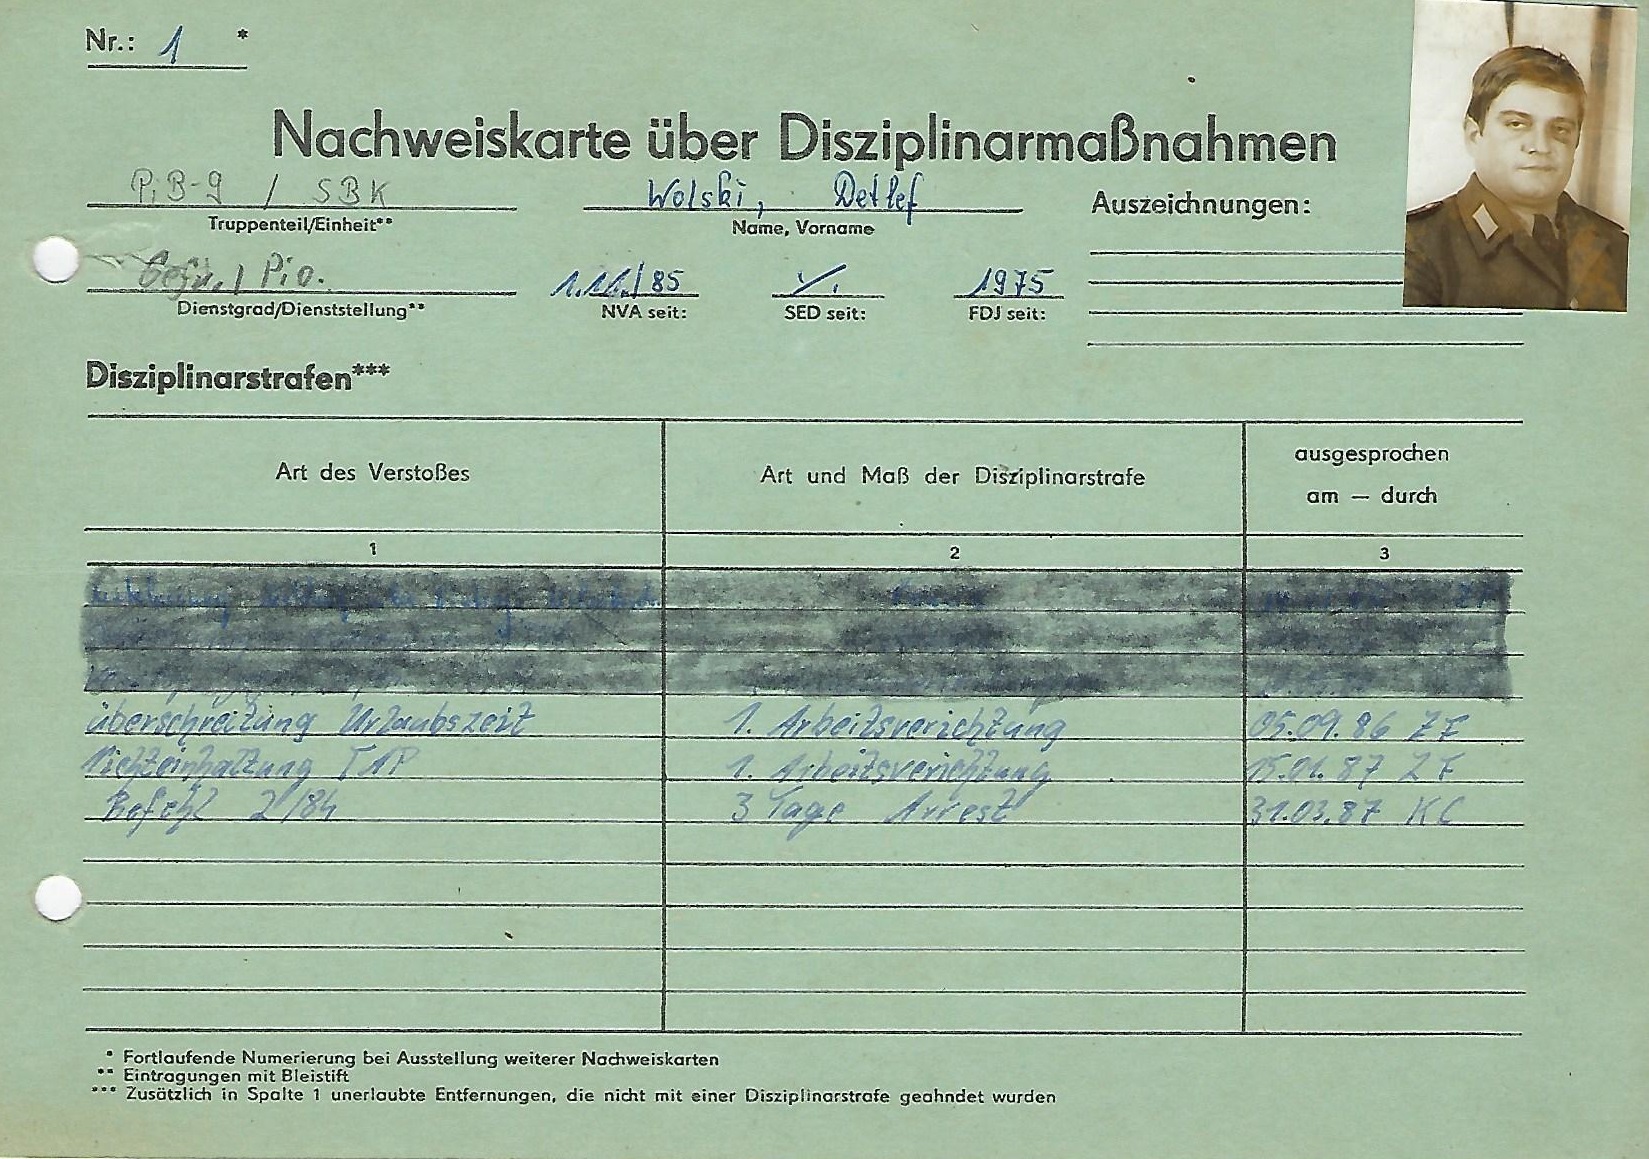 Nr.: 1 *
Nachweiskarte über Disziplinarmaßnahmen
PiB-9 / SBK
Wolski, Detlef
Auszeichnungen:
Truppenteil/Einheit**
Name, Vorname
Gefr. / Pio.
1.11./85
1975
Dienstgrad/Dienststellung**
NVA seit:
SED seit:
FDJ seit:
Disziplinarstrafen***
Art des Verstoßes
Art und Maß der Disziplinarstrafe
ausgesprochen
am — durch
1
2
3
überschreitung Urlaubszeit 1. Arbeitsverichtung 05.09.86 ZF
Nichteinhaltung TAP 1. Arbeitsverichtung 15.01.87 ZF
Befehl 2/84 3 Tage Arrest 31.03.87 KC
* Fortlaufende Numerierung bei Ausstellung weiterer Nachweiskarten
** Eintragungen mit Bleistift
*** Zusätzlich in Spalte 1 unerlaubte Entfernungen, die nicht mit einer Disziplinarstrafe geahndet wurden